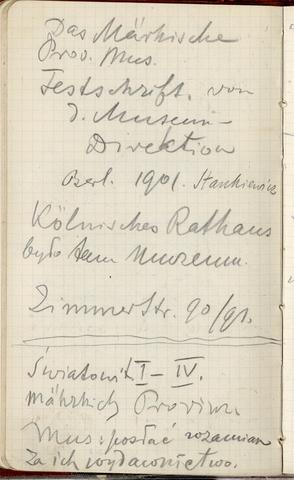 Das Märkische
Prov. Mus.
Festschrift. von
d. Museum-
Direktion
Berl. 1901. Stankiewicz
Kölnisches Rathaus
było tem Muzeum.
Zimmerstr. 90/91.
Światowit I–IV.
märkisch Provinz.
Mus: posłać wzamian
za ich wydawnictwo.